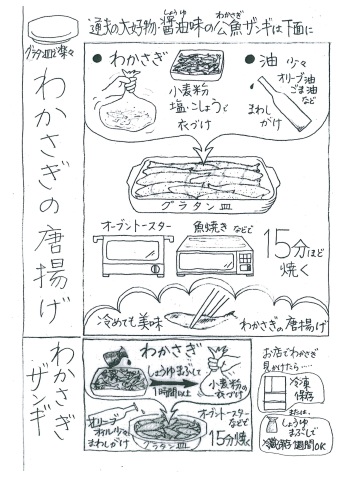 グラタン皿で楽々
わかさぎの唐揚げ
道夫の大好物・醤油味の公魚ザンギは下面に
しょうゆ
わかさぎ
● わかさぎ
小麦粉
塩・こしょうで
衣づけ
● 油 少々
オリーブ油
ごま油
など
まわし
がけ
グラタン皿
オーブントースター
魚焼きなどで
15分ほど
焼く
冷めても美味
わかさぎの唐揚げ
わかさぎ
ザンギ
わかさぎ
しょうゆまぶして
1時間以上
小麦粉の
衣づけ
オリーブ
オイル少々
まわしがけ
グラタン皿
オーブントースター
などで
15分焼く
お店でわかさぎ
見かけたら……
冷凍
保存
または、
しょうゆ
まぶして
冷蔵保存1週間OK